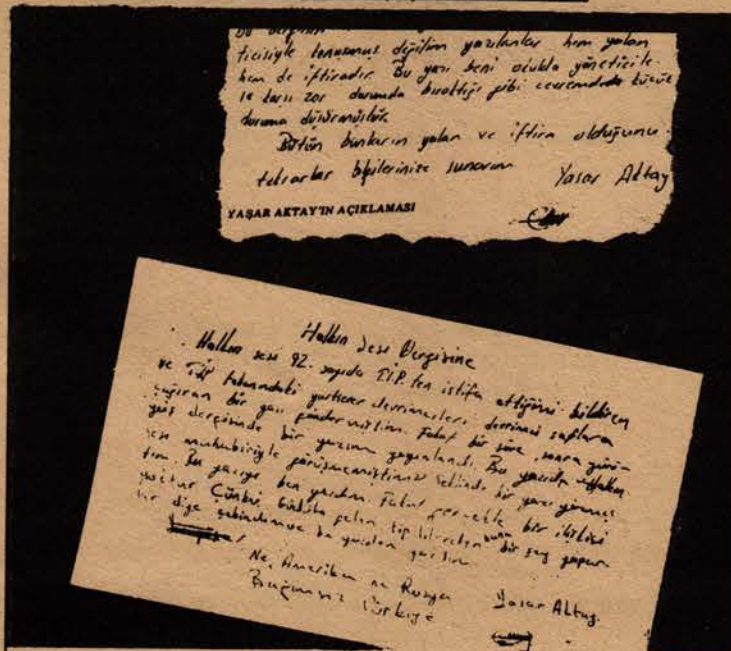 bu derginin
ticisiyle konuşmuş değilim yazılanlar hem yalan
hem de iftiradır. Bu yazı beni okulda yöneticile
re karşı zor durumda bıraktığı gibi çevremdede küçük
duruma düşürmüştür.
Bütün bunların yalan ve iftira olduğunu
tekrarlar bilgilerinize sunarım
Yaşar Aktay
YAŞAR AKTAY'IN AÇIKLAMASI
Halkın Sesi Dergisine
Halkın sesi 92. sayıda T.İ.P. ten istifa ettiğimi bildiren
ve TİP tabanındaki yurtsever devrimcileri devrimci saflara
çağıran bir yazı göndermiştim. Fakat bir süre sonra yürü-
yüş dergisinde bir yazım yayınlandı. Bu yazıda Halkın
sesi muhabiriyle görüşmemiştim şeklinde bir yazı yazmış
tım. Bu yazıyı ben yazdım. Fakat gerçekle bir ilişkisi
yoktur. Çünkü, okula gelen tip bana bir şey yapar
lar diye bu yazıyı yazdım.
Ne Amerika ne Rusya
Bağımsız Türkiye
Yaşar Aktay.